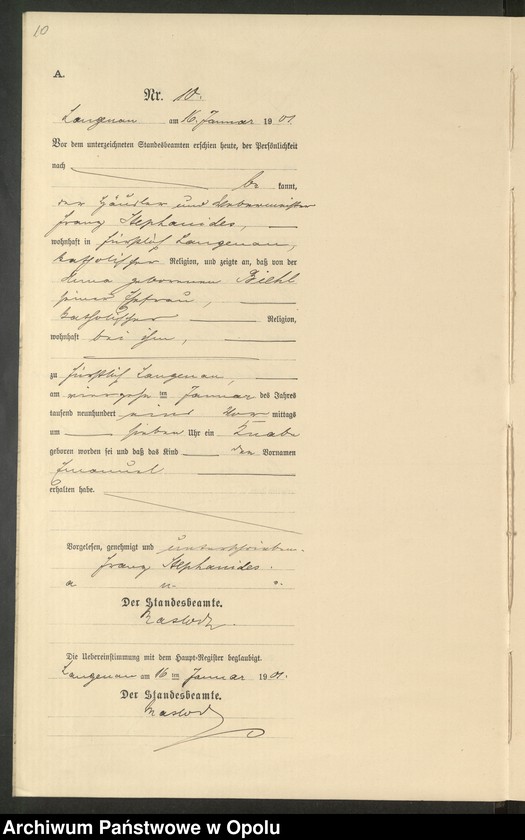 10
A.
Nr. 10.
Langenau am 16. Januar 1901.
Vor dem unterzeichneten Standesbeamten erschien heute, der Persönlichkeit
nach
be kannt,
der Häusler und Webermeister
Franz Stephanides,
wohnhaft in fürstlich Langenau,
katholischer Religion, und zeigte an, daß von der
geborenen Biehl
seiner Ehefrau,
katholischer Religion,
wohnhaft bei ihm,
zu fürstlich Langenau,
am vierzehn ten Januar des Jahres
tausend neunhundert eins Vor mittags
um sieben Uhr ein Knabe
geboren worden sei und daß das Kind den Vornamen
Emanuel
erhalten habe.
Vorgelesen, genehmigt und unterschrieben.
Franz Stephanides.
Der Standesbeamte.
Die Uebereinstimmung mit dem Haupt-Register beglaubigt.
Langenau am 16 ten Januar 1901.
Der Standesbeamte.
Archiwum Państwowe w Opolu